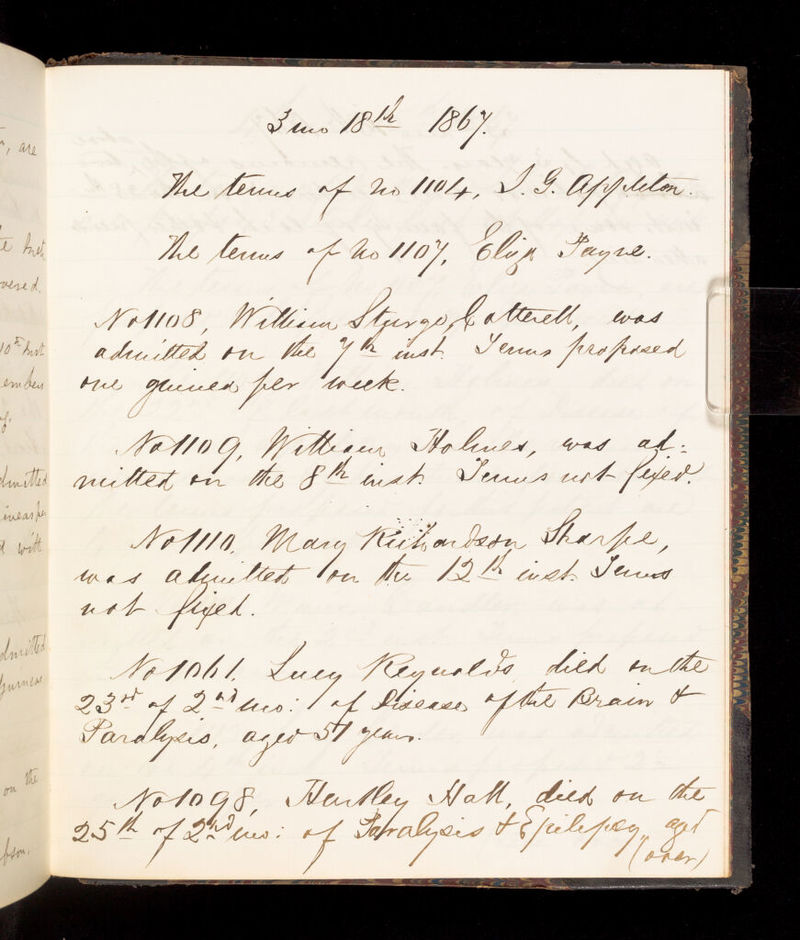 3 mo 18th 1867.
The terms of No 1104, J. G. Appleton.
The terms of No 1107, Eliza Payne.
No 1108, William Sturge Cotterell, was
admitted on the 7th inst. Terms proposed
one guinea per week.
No 1109, William Holmes, was ad-
mitted on the 8th inst. Terms not fixed.
No 1110, Mary Richardson Sharpe,
was admitted on the 12th inst. Terms
not fixed.
No 1061, Lucy Reynolds died on the
23rd of 2nd mo: of Disease of the Brain &
Paralysis, aged 51 years.
No 1098, Hartley Hall, died on the
25th of 2nd mo: of Paralysis & Epilepsy aged
(over)
are
inst
10th inst
admitted
with
admitted
on the